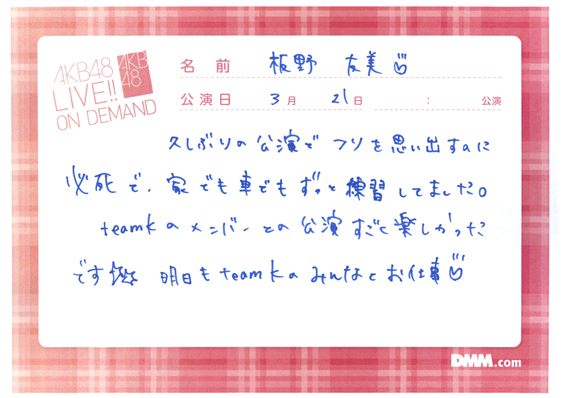 AKB48
LIVE!!
ON DEMAND
AKB
48
名 前 板野 友美
公演日 3月 21日 : 公演
久しぶりの公演で フリを思い出すのに
必死で、家でも車でもずっと練習してました。
teamkのメンバーとの公演すごく楽しかった
です 明日もteamkのみんなとお仕事
DMM.com